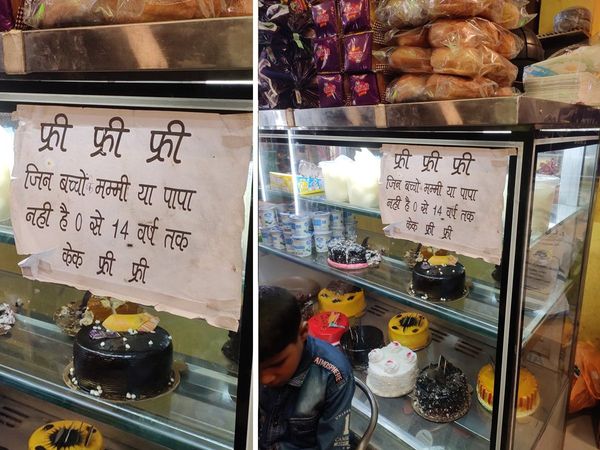 फ्री फ्री फ्री
जिन बच्चों मम्मी या पापा
नही है 0 से 14 वर्ष तक
केक फ्री फ्री
फ्री फ्री फ्री
जिन बच्चों मम्मी या पापा
नही है 0 से 14 वर्ष तक
केक फ्री फ्री
ATMOSPHERE